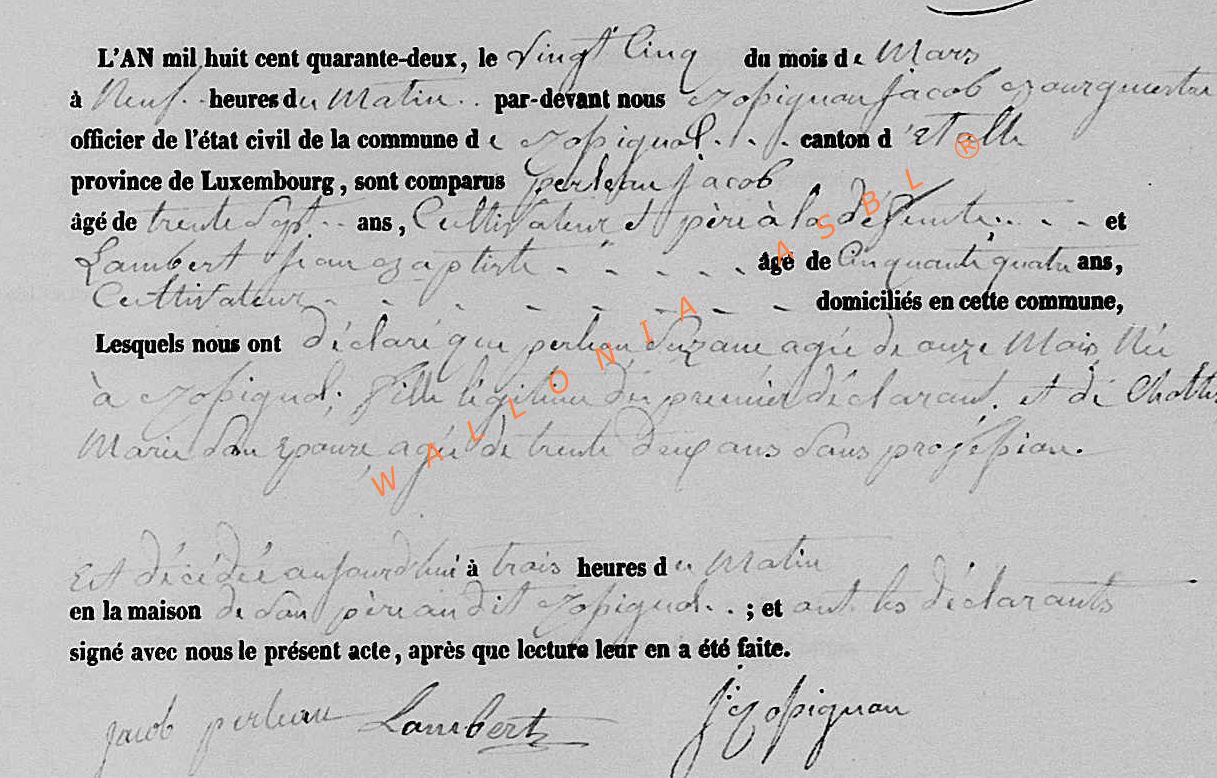 L'AN mil huit cent quarante-deux, le Vingt Cinq du mois de Mars
à Neuf heures du Matin par-devant nous Rossignon Jacob Bourguestre
officier de l'état civil de la commune de Rossignol canton d'Etalle
province de Luxembourg, sont comparus perleau jacob
âgé de trente Sept ans, Cultivateur et père à la défunte et
Lambert jean Baptiste âgé de Cinquante quatre ans,
Cultivateur domiciliés en cette commune,
Lesquels nous ont déclaré que perleau Suzane agée de onze Mois Née
à Rossignol, fille légitime du premier déclarant. et de
Marie Son Epouse agée de trente deux ans Sans profession.
Est décédée aujourd'hui à trois heures du Matin
en la maison de Son père audit Rossignol ; et ont les déclarants
signé avec nous le présent acte, après que lecture leur en a été faite.
jacob perleau Lambert J Rossignon
WALLONIA ASBL ®